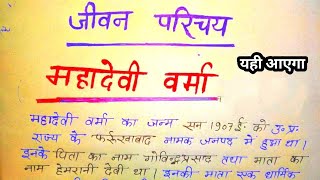 जीवन परिचय
महादेवी वर्मा
यही आएगा
महादेवी वर्मा का जन्म सन 1907 ई॰ को उ॰प्र॰
राज्य के 'फर्रुखाबाद' नामक जनपद में हुआ था।
इनके पिता का नाम गोविन्दप्रसाद तथा माता का
नाम हेमरानी देवी था। इनकी माता एक धार्मिक